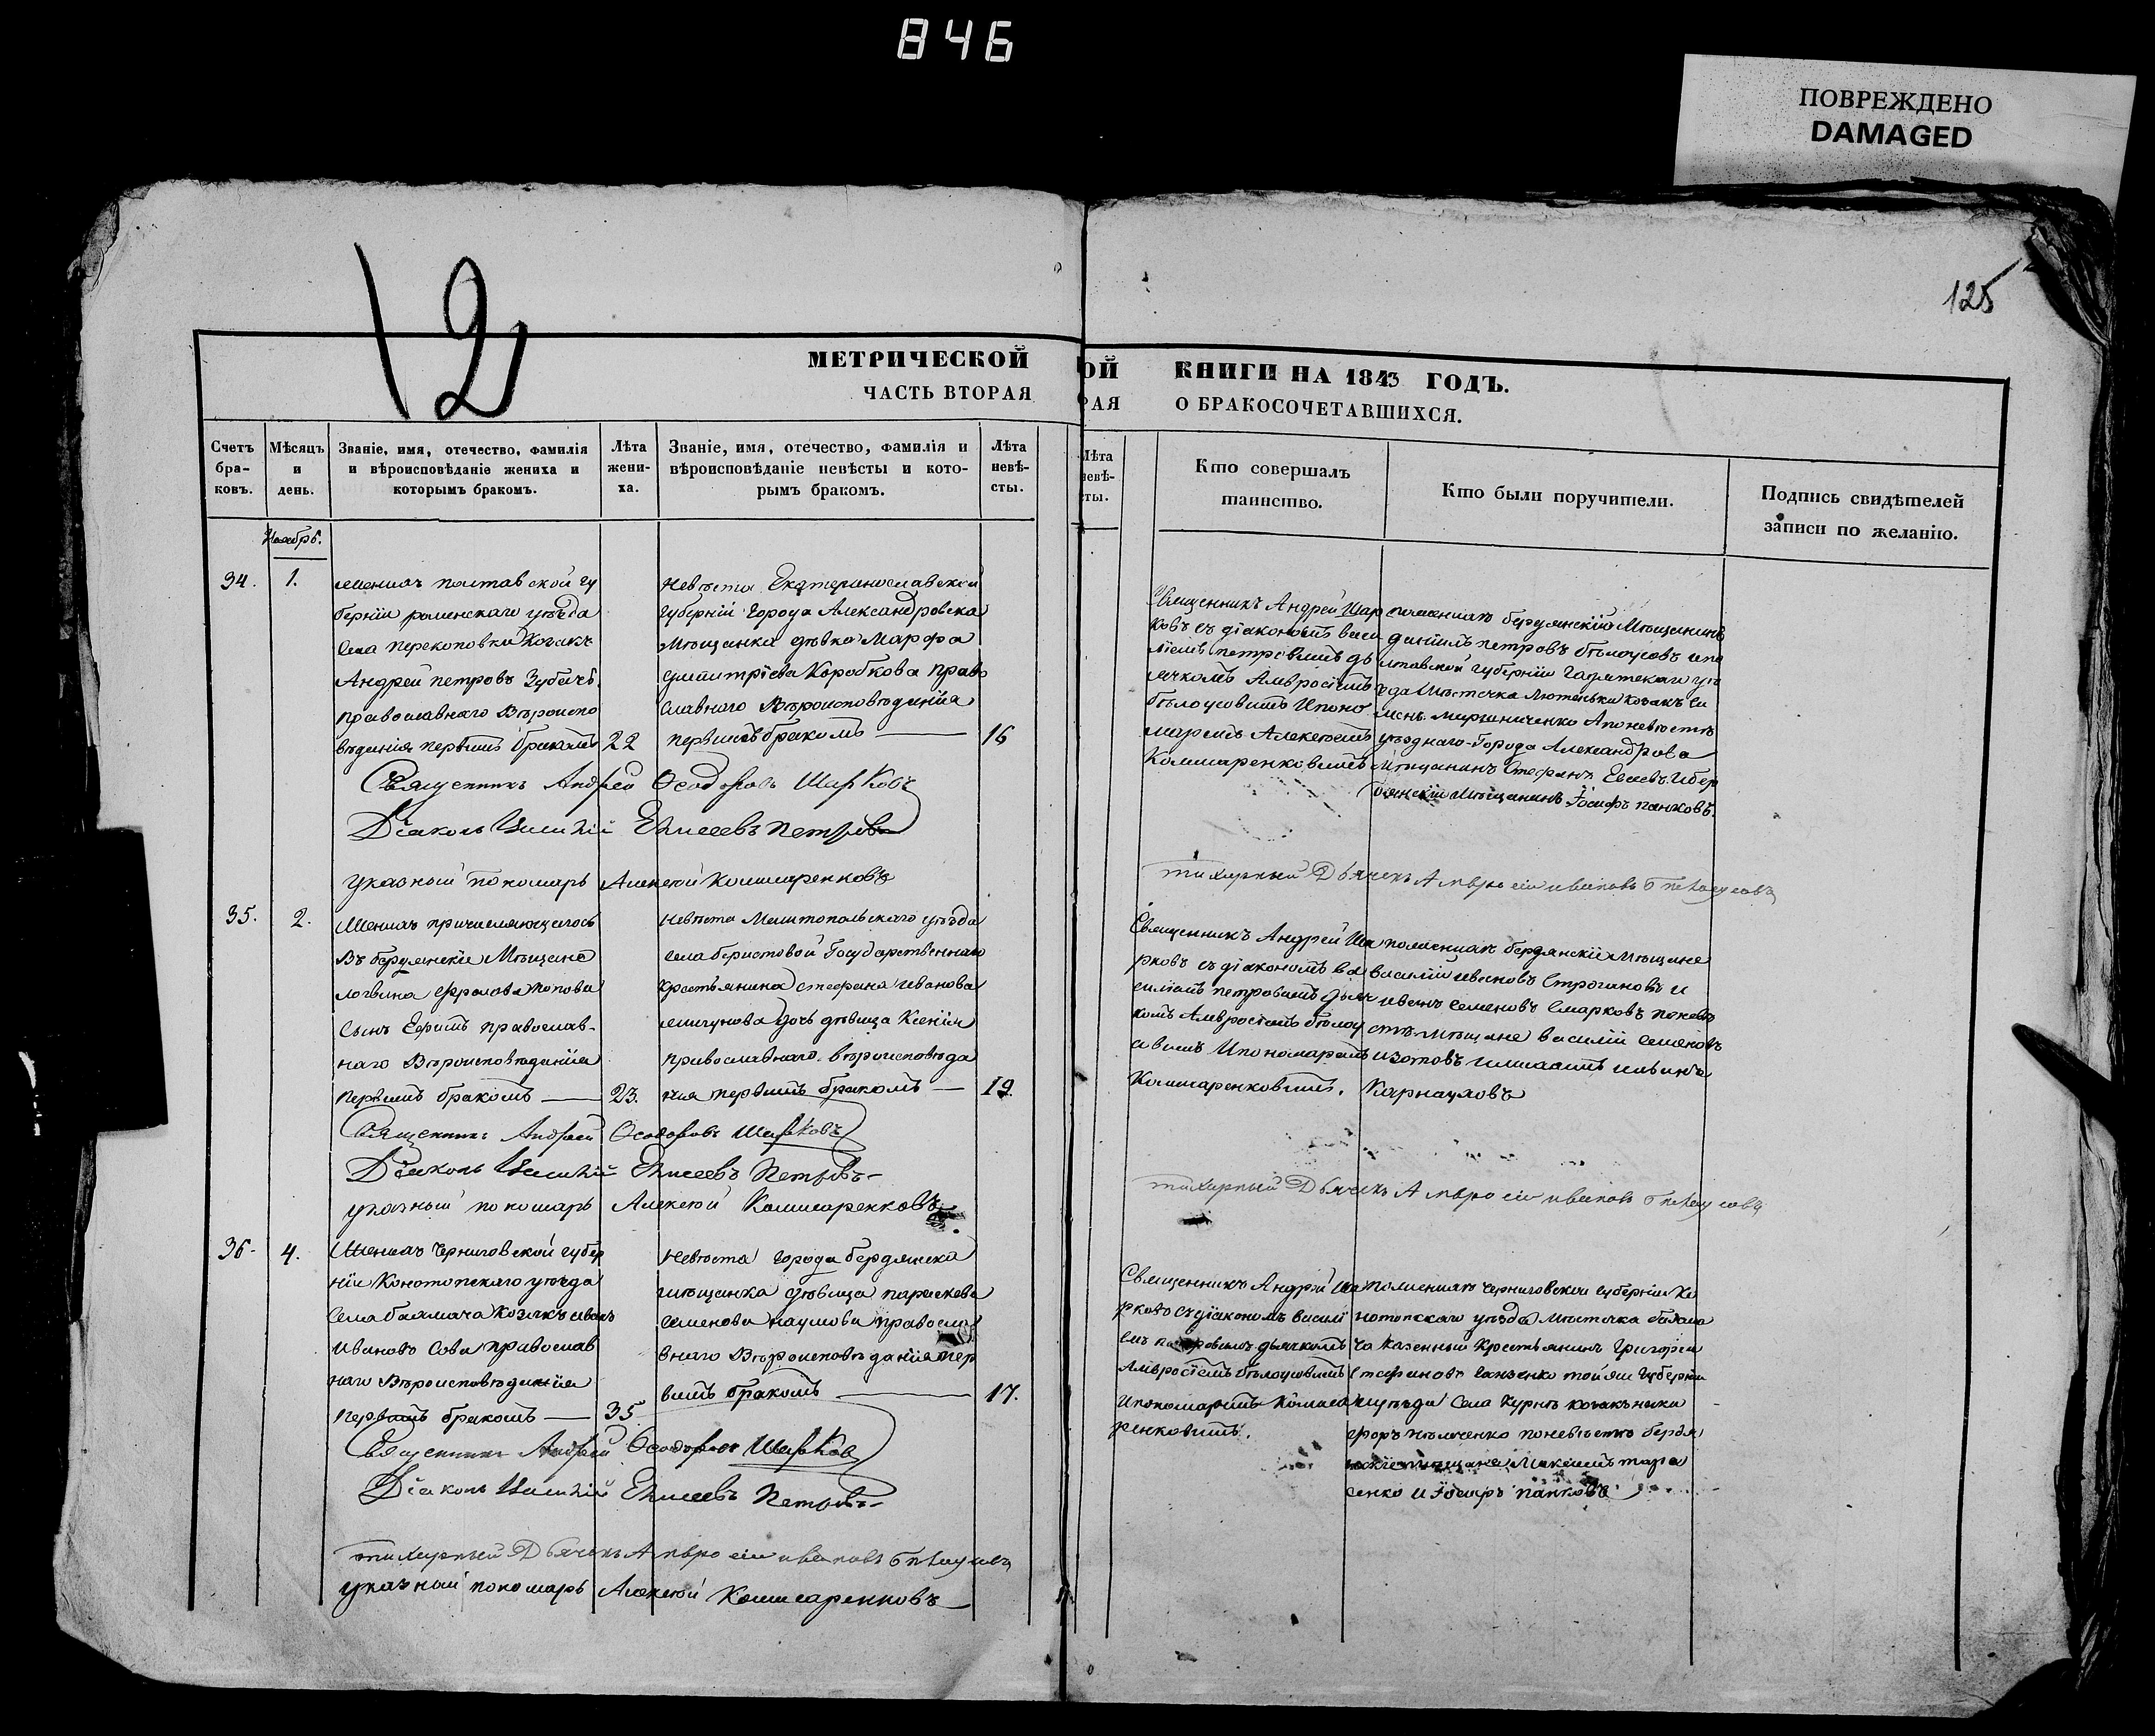 846
ПОВРЕЖДЕНО
DAMAGED
125
12
МЕТРИЧЕСКОЙ
ЧАСТЬ ВТОРАЯ
ОЙ КНИГИ НА 1843 ГОДЪ.
РАЯ О БРАКОСОЧЕТАВШИХСЯ.
Счетъ бра-ковъ.
Мѣсяцъ и день.
Званіе, имя, отечество, фамилія
и вѣроисповѣданіе жениха и
которымъ бракомъ.
Лѣта жени-ха.
Званіе, имя, отечество, фамилія и
вѣроисповѣданіе невѣсты и кото-
рымъ бракомъ.
Лѣта невѣ-сты.
Лѣта
невѣ-
сты.
Кто совершалъ
таинство.
Кто были поручители.
Подпись свидѣтелей
записи по желанію.
Ноябрь.
34.
1.
Женихъ полтавской гу
берніи роменскаго уѣзда
села перекоповки Козакъ
Андрей петровъ
православнаго Вѣроиспо
вѣданія первымъ бракомъ
22
Невѣста Екатеринославской
Губерніи Города Александровска
Мѣщанка дѣвка Марфа
димитріева Коробкова право
славнаго Вѣроисповѣданія
первымъ бракомъ
16
Священникъ Андрей Шар
ковъ съ діакономъ васи
ліемъ петровымъ дь
ячкомъ Амвросіемъ
бѣлоусовымъ Ипоно
маремъ Алексѣемъ
Комисаренковымъ
пожениху бердянскій Мѣщанинъ
даніилъ петровъ бѣлоусовъ ипо
лтавской губерніи Гадятскаго уѣ
зда Мѣстечка Лютеньки козакъ се
менъ Апоневѣстѣ
уѣзднаго Города Александрова
Мѣщанинъ Стефанъ Евсевъ Ибер
дянскій Мѣщанинъ Іосифъ панковъ.
Священникъ Андрей Ѳеодоровъ Шарковъ
Діаконъ Василій Елисеевъ Петровъ
указный пономарь Алексѣй Комисаренковъ
Дьячекъ Амвросій ивановъ бѣлоусовъ
35.
2.
Женихъ причисляющагося
Въ бердянскіе Мѣщане
логвина фролова попова
сынъ Ефимъ православ-
наго Вѣроисповѣданія
первымъ бракомъ
23.
Невѣста Мелитопольскаго уѣзда
села берестовой Государственнаго
крестьянина стефана иванова
дочь дѣвица Ксенія
православнаго вѣроисповѣда
нія первымъ бракомъ
19.
Священникъ Андрей Ша
рковъ съ діакономъ ва
силіемъ петровымъ дьяч
комъ Амвросіемъ бѣлоу
совымъ Ипономаремъ
Комисаренковымъ.
пожениху бердянскіе Мѣщане
василій ивановъ Строгановъ и
иванъ семеновъ Смарковъ поневѣ
стѣ мѣщане василій семеновъ
изотовъ
Карнауховъ
Священникъ Андрей Ѳеодоровъ Шарковъ
Діаконъ Василій Елисеевъ Петровъ
указный пономарь Алексѣй Комисаренковъ
Дьячекъ Амвросій ивановъ бѣлоусовъ
36.
4.
Женихъ Черниговской губер
ніи Конотопскаго уѣзда
села бахмача Козакъ иванъ
ивановъ Сова православ
наго Вѣроисповѣданія
первымъ бракомъ
35.
Невѣста города бердянска
мѣщанка дѣвица параскева
семенова наумова правосла
внаго Вѣроисповѣданія пер
вымъ бракомъ
17.
Священникъ Андрей Ша
рковъ съ діакономъ васілі
емъ петровымъ дьячкомъ
Амвросіемъ бѣлоусовымъ
Ипономаремъ Комиса
ренковымъ.
пожениху черниговской губерніи Ко
нотопскаго уѣзда мѣстечка бахма
ча казенный Крестьянинъ Григорій
стефановъ той же губерніи
уѣзда села козакъ ники
форъ поневѣстѣ бердя
нскіе мѣщане Максимъ тара
сенко и Іосифъ панковъ
Священникъ Андрей Ѳеодоровъ Шарковъ
Діаконъ Василій Елисеевъ Петровъ
Дьячекъ Амвросій ивановъ бѣлоусовъ
указный пономарь Алексѣй Комисаренковъ